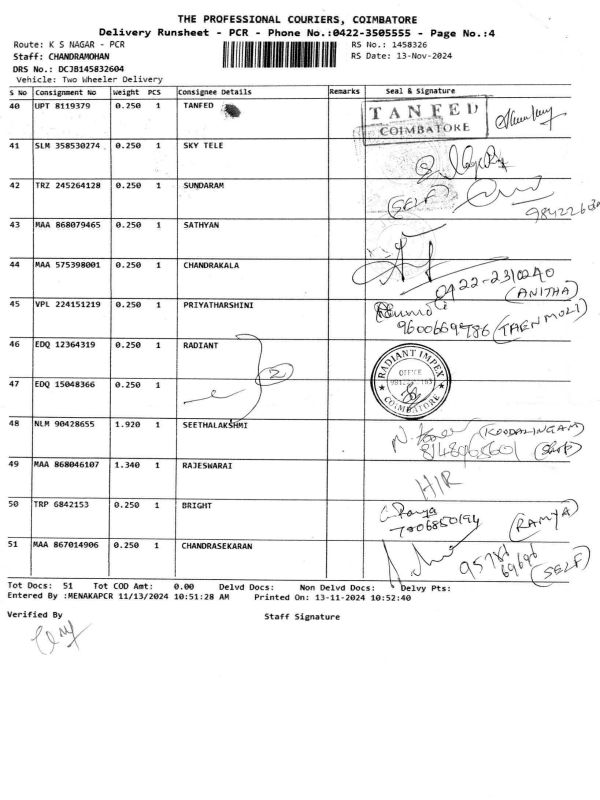 THE PROFESSIONAL COURIERS, COIMBATORE
Delivery Runsheet - PCR - Phone No.:0422-3505555 - Page No.:4
Route: K S NAGAR - PCR RS No.: 1458326
Staff: CHANDRAMOHAN RS Date: 13-Nov-2024
DRS No.: DCJB145832604
Vehicle: Two Wheeler Delivery
S No Consignment No Weight PCS Consignee Details Remarks Seal & Signature
40 UPT 8119379 0.250 1 TANFED TANFED COIMBATORE
41 SLM 358530274 0.250 1 SKY TELE
42 TRZ 245264128 0.250 1 SUNDARAM (SELF)
43 MAA 868079465 0.250 1 SATHYAN
44 MAA 575398001 0.250 1 CHANDRAKALA 0422-2310240 (ANITHA)
45 VPL 224151219 0.250 1 PRIYATHARSHINI 9600669786 (THENMOZI)
46 EDQ 12364319 0.250 1 RADIANT (2) RADIANT IMPEX OFFICE COIMBATORE
47 EDQ 15048366 0.250 1
48 NLM 90428655 1.920 1 SEETHALAKSHMI (KOODALINGAM)
49 MAA 868046107 1.340 1 RAJESWARAI H/R
50 TRP 6842153 0.250 1 BRIGHT (RAMYA)
51 MAA 867014906 0.250 1 CHANDRASEKARAN (SELF)
Tot Docs: 51 Tot COD Amt: 0.00 Delvd Docs: Non Delvd Docs: Delvy Pts:
Entered By :MENAKAPCR 11/13/2024 10:51:28 AM Printed On: 13-11-2024 10:52:40
Verified By Staff Signature